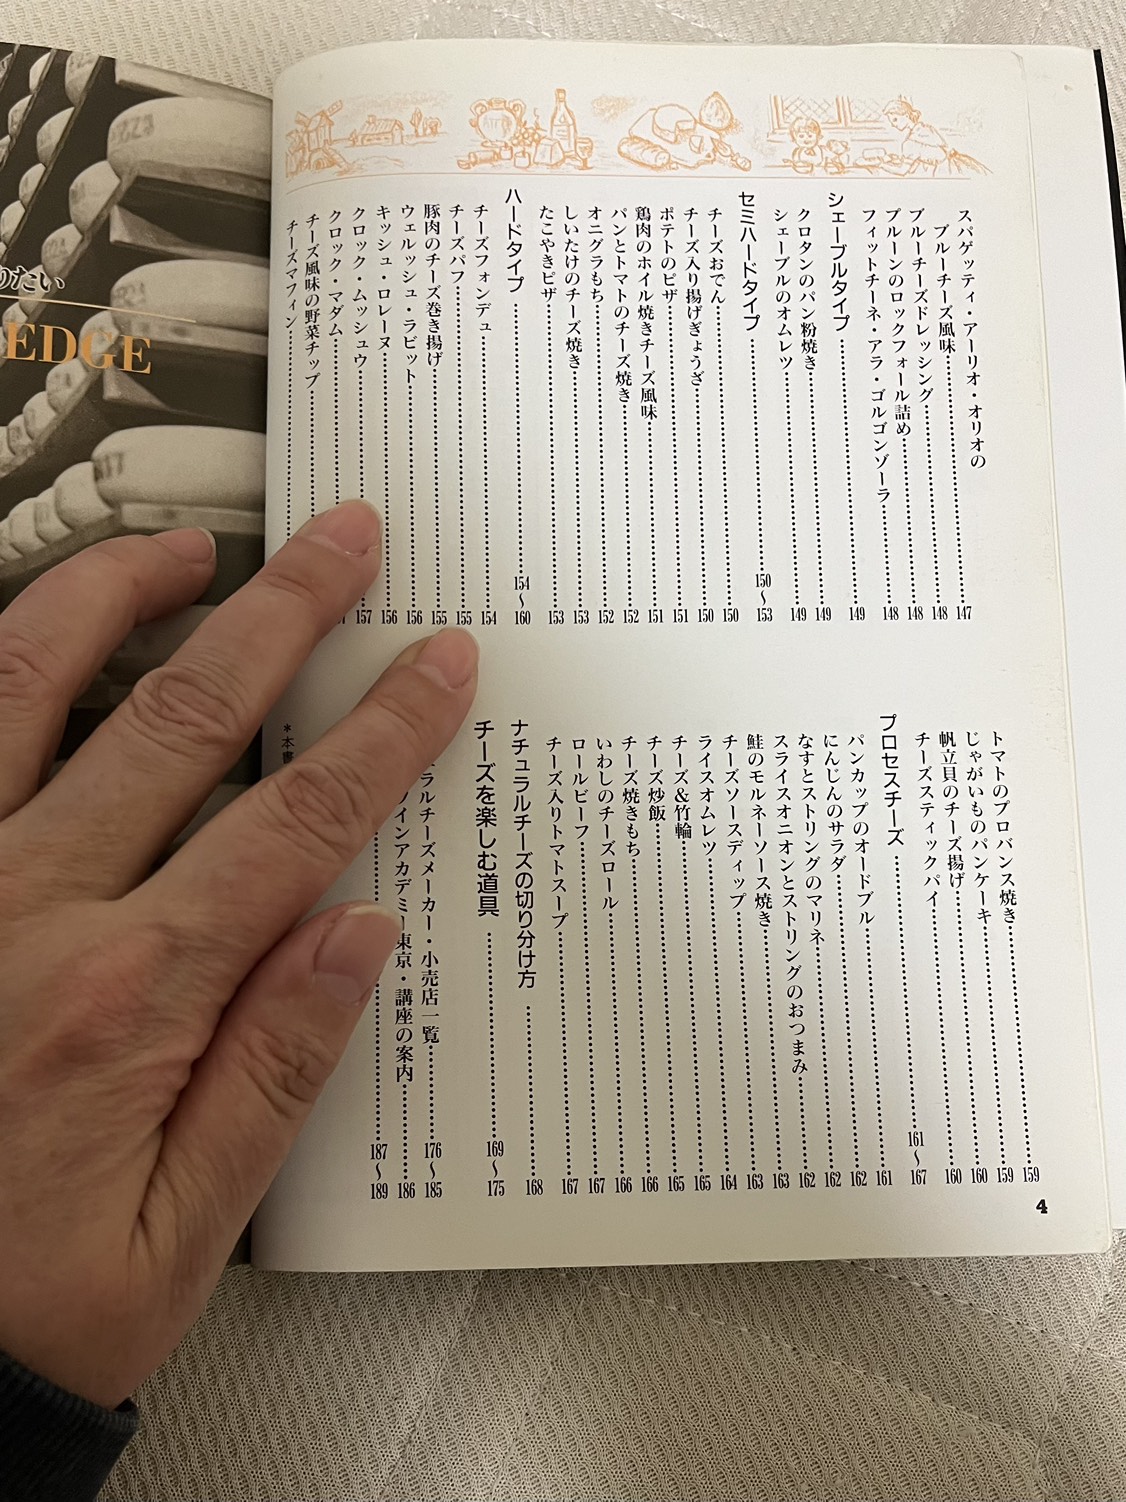 スパゲッティ・アーリオ・オリオの
ブルーチーズ風味…147
ブルーチーズドレッシング…148
プルーンのロックフォール詰め…148
フィットチーネ・アラ・ゴルゴンゾーラ…148
シェーブルタイプ…149
クロタンのパン粉焼き…149
シェーブルのオムレツ…149
セミハードタイプ…150〜153
チーズおでん…150
チーズ入り揚げぎょうざ…150
ポテトのピザ…151
鶏肉のホイル焼きチーズ風味…151
パンとトマトのチーズ焼き…152
オニグラもち…152
しいたけのチーズ焼き…153
たこやきピザ…153
ハードタイプ…154〜160
チーズフォンデュ…154
チーズパフ…155
豚肉のチーズ巻き揚げ…155
ウェルッシュ・ラビット…156
キッシュ・ロレーヌ…156
クロック・ムッシュウ…157
クロック・マダム…
チーズ風味の野菜チップ…
チーズマフィン…
トマトのプロバンス焼き…159
じゃがいものパンケーキ…159
帆立貝のチーズ揚げ…160
チーズスティックパイ…160
プロセスチーズ…161〜167
パンカップのオードブル…161
にんじんのサラダ…162
なすとストリングのマリネ…162
スライスオニオンとストリングのおつまみ…162
鮭のモルネーソース焼き…163
チーズソースディップ…163
ライスオムレツ…164
チーズ&竹輪…165
チーズ炒飯…165
チーズ焼きもち…166
いわしのチーズロール…166
ロールビーフ…167
チーズ入りトマトスープ…167
ナチュラルチーズの切り分け方…168
チーズを楽しむ道具…169〜175
ラルチーズメーカー・小売店一覧…176〜185
インアカデミー東京・講座の案内…186
…187〜189
*本書
4
りたい
EDGE